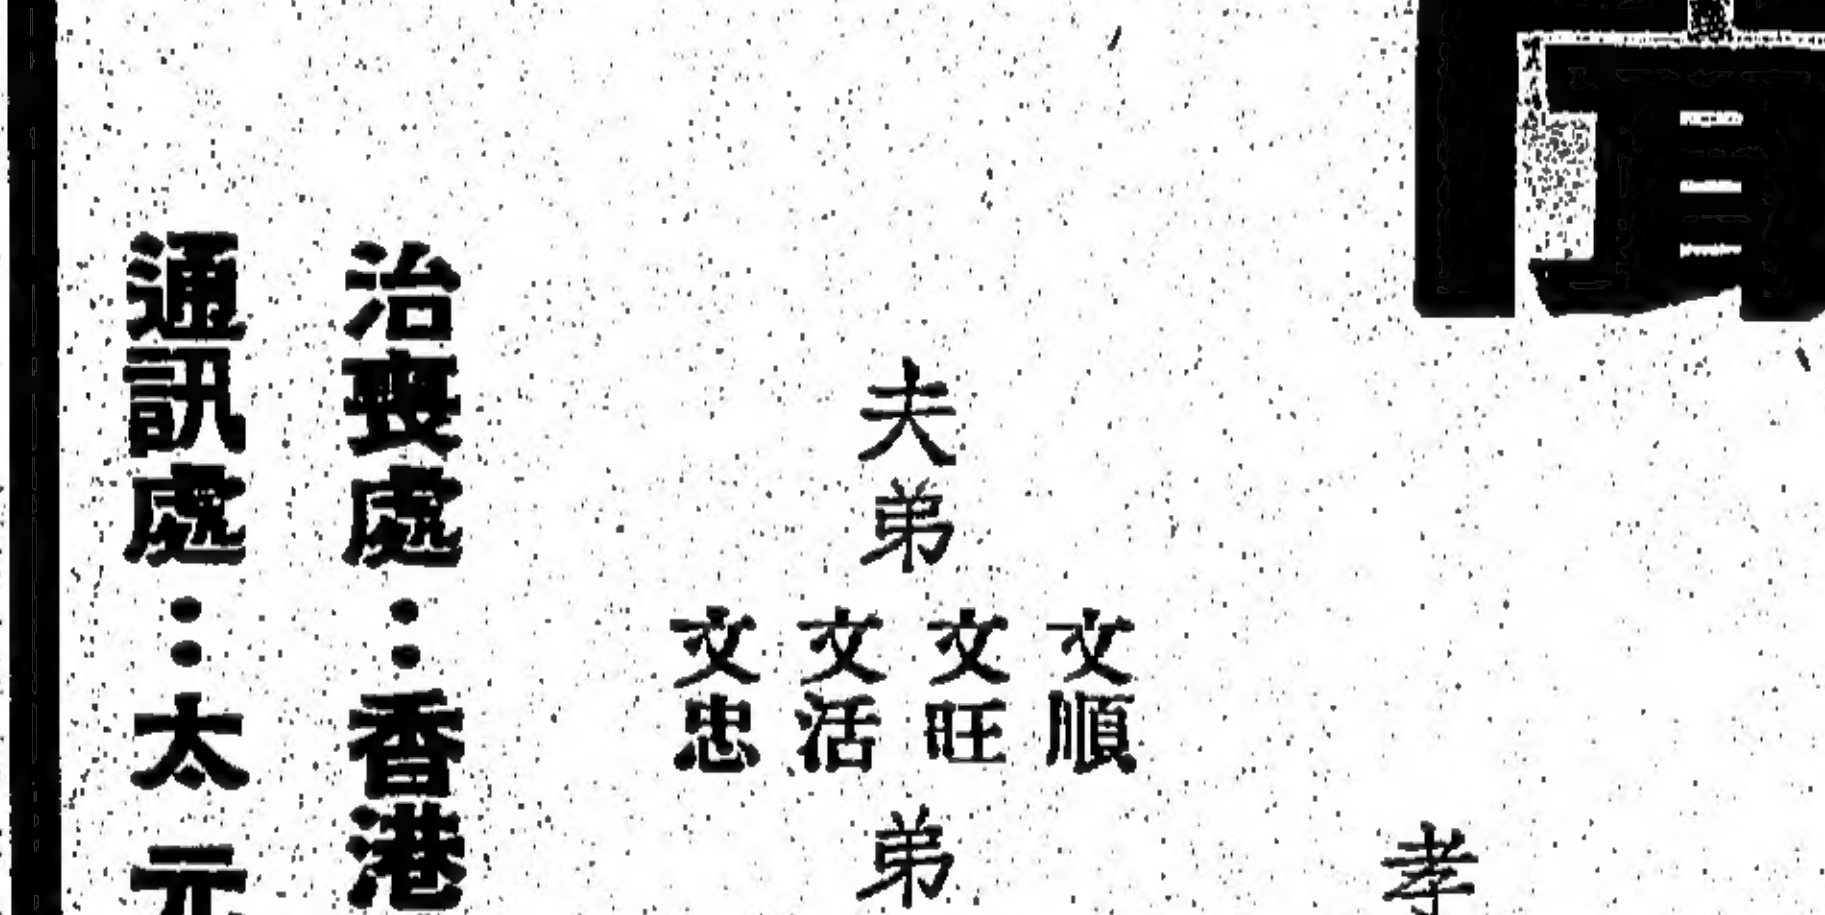 孝
夫弟
文順
文旺
文活
文忠
弟
治喪處：香港
通訊處：太元